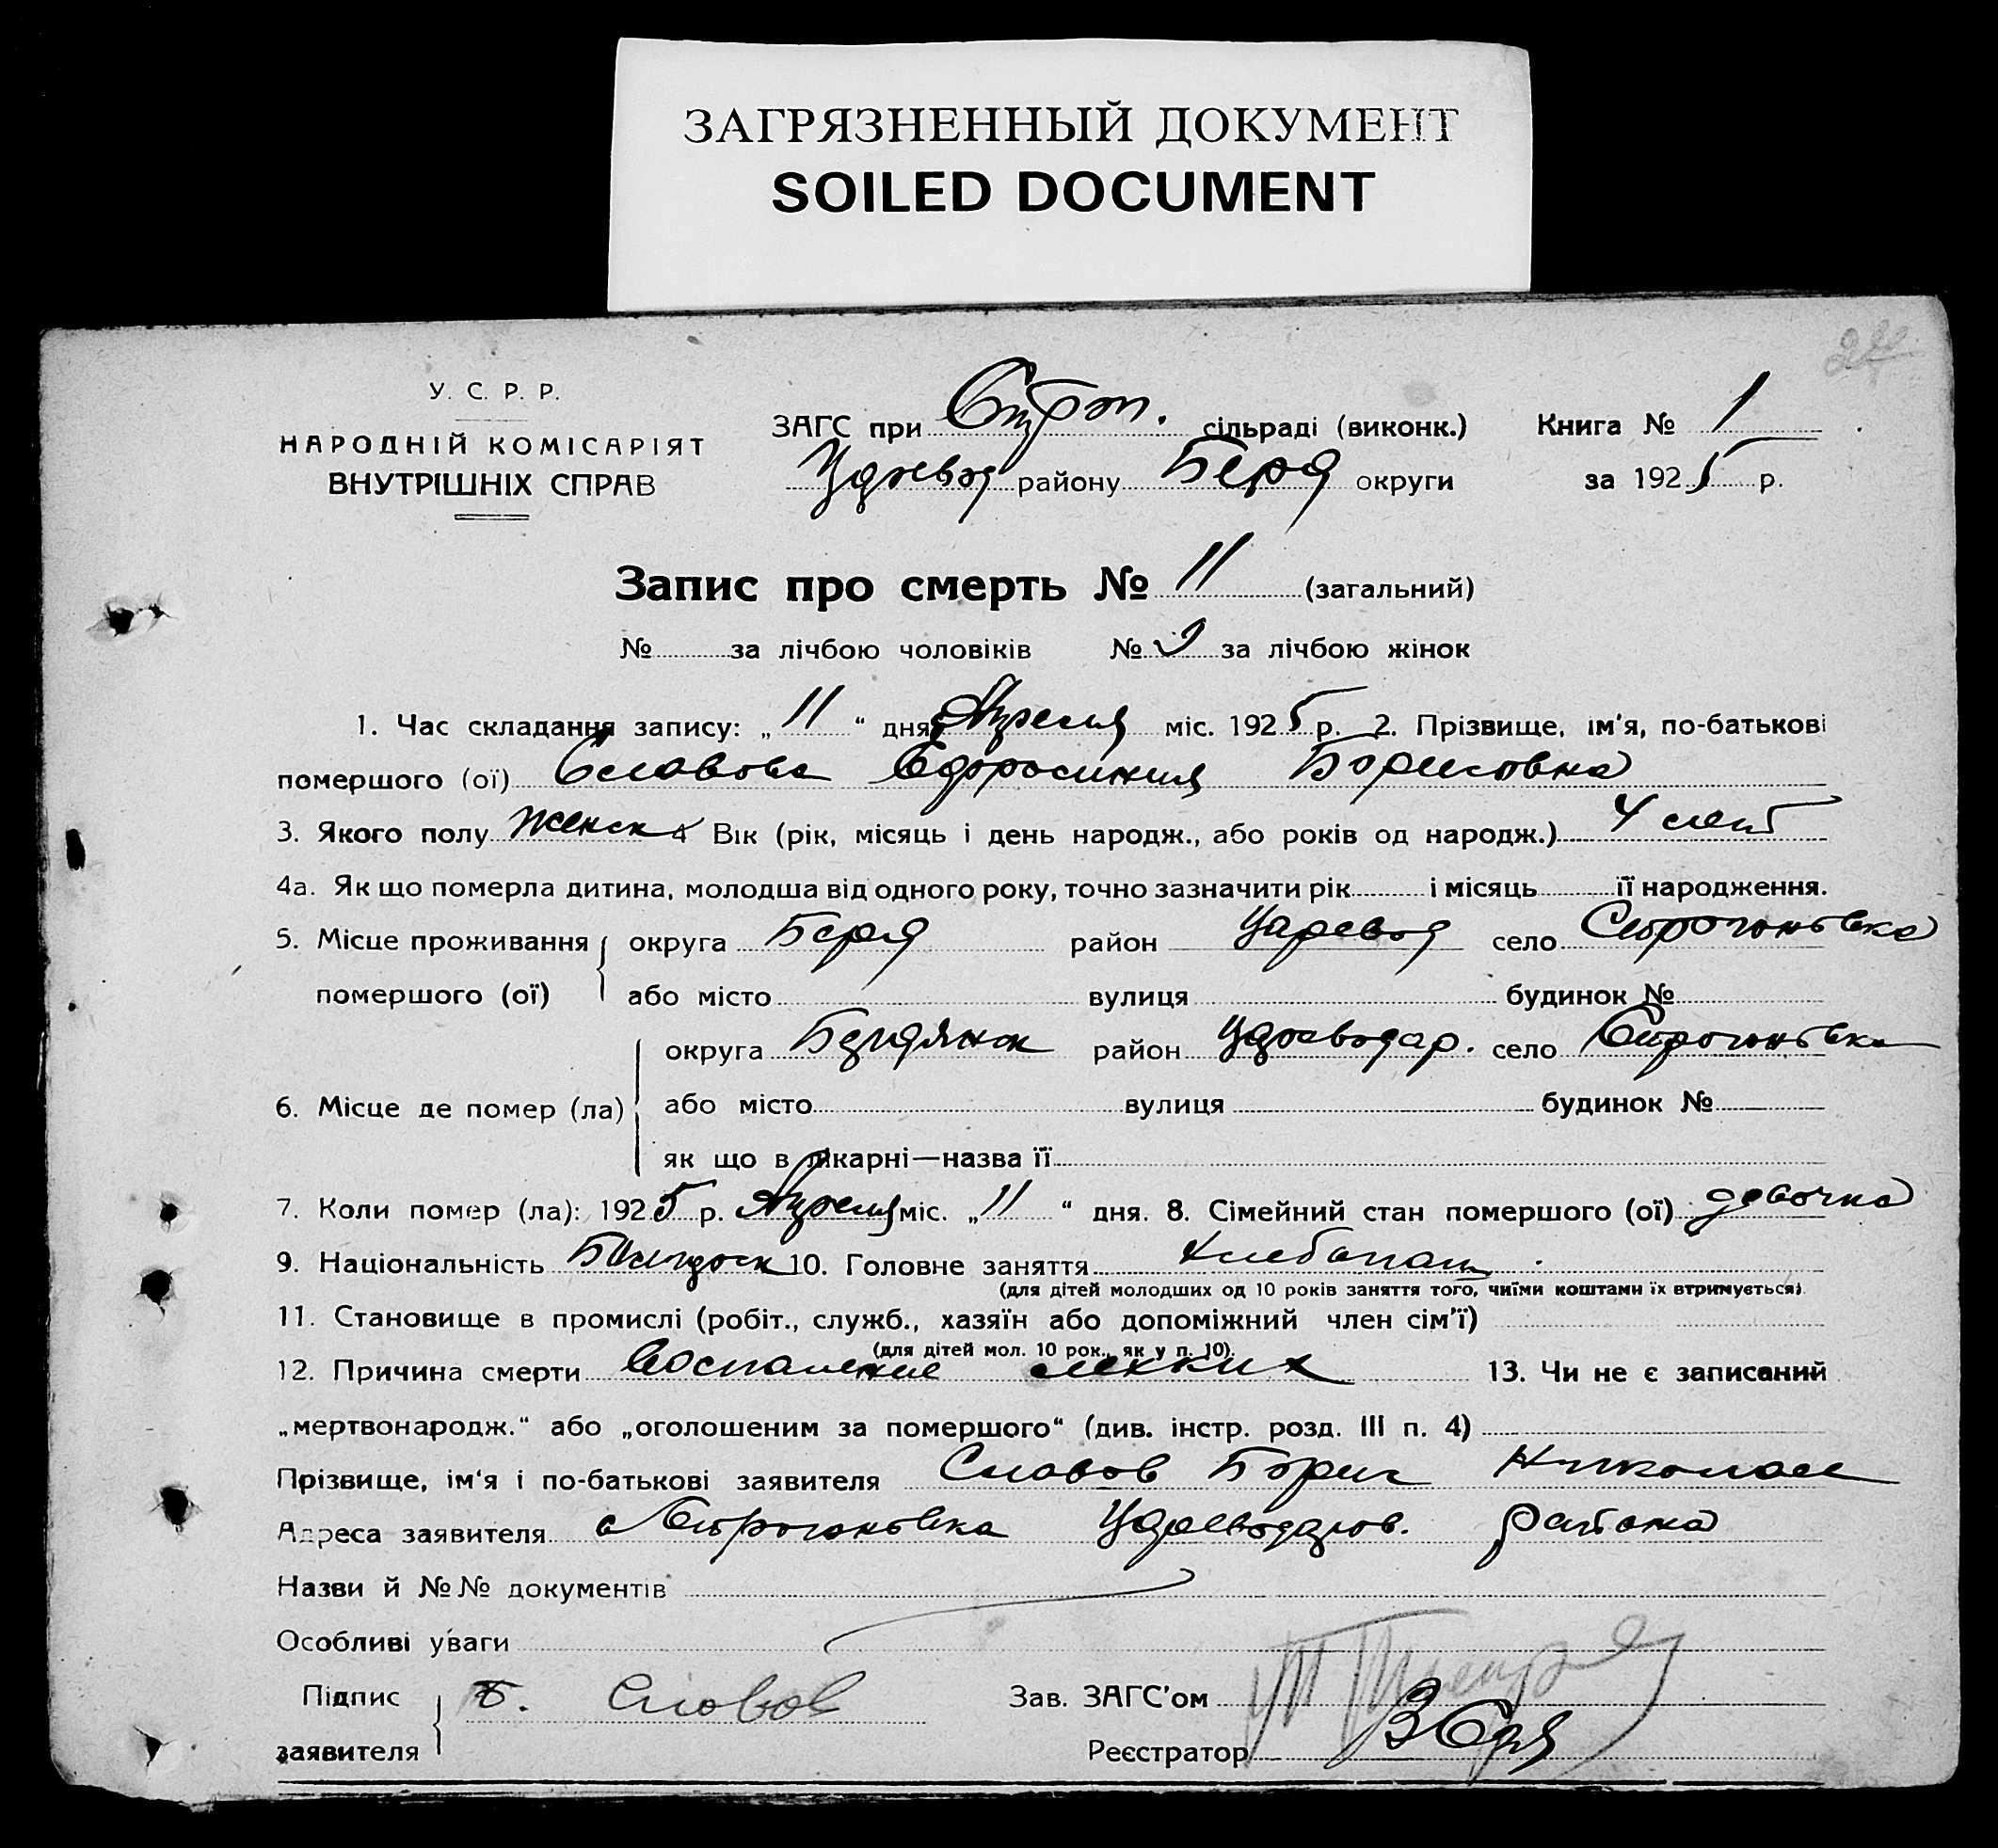 ЗАГРЯЗНЕННЫЙ ДОКУМЕНТ
SOILED DOCUMENT
24
У. С. Р. Р.
НАРОДНІЙ КОМІСАРІЯТ
ВНУТРІШНІХ СПРАВ
ЗАГС при Строг. сільраді (виконк.) Книга № 1
Царевод району Берд округи за 1925 р.
Запис про смерть № 11 (загальний)
№ за лічбою чоловіків № за лічбою жінок
1. Час складання запису: „11“ дня Апреля міс. 1925 р. 2. Прізвище, ім'я, по-батькові
помершого (ої) Славова Ефросиния Борисовна
3. Якого полу женск 4 Вік (рік, місяць і день народж., або років од народж.) 4 лет
4а. Як що померла дитина, молодша від одного року, точно зазначити рік і місяць її народження.
5. Місце проживання помершого (ої) округа Берд район Царевод село Строгоновка
або місто вулиця будинок №
6. Місце де помер (ла) округа Бердянск район Цареводар. село Строгоновка
або місто вулиця будинок №
як що в лікарні—назва її
7. Коли помер (ла): 1925 р. Апреля міс. „11“ дня. 8. Сімейний стан помершого (ої) девочка
9. Національність 10. Головне заняття хлебопаш
(для дітей молодших од 10 років заняття того, чиїми коштами їх втримується)
11. Становище в промислі (робіт., служб., хазяїн або допоміжний член сім'ї)
(для дітей мол. 10 рок., як у п. 10).
12. Причина смерти Воспаление легких 13. Чи не є записаний
„мертвонародж.“ або „оголошеним за помершого“ (див. інстр. розд. III п. 4)
Прізвище, ім'я і по-батькові заявителя Славов Борис Николаев
Адреса заявителя с Строгоновка Цареводаров. района
Назви й №№ документів
Особливі уваги
Підпис заявителя Б. Славов Зав. ЗАГС'ом
Реєстратор